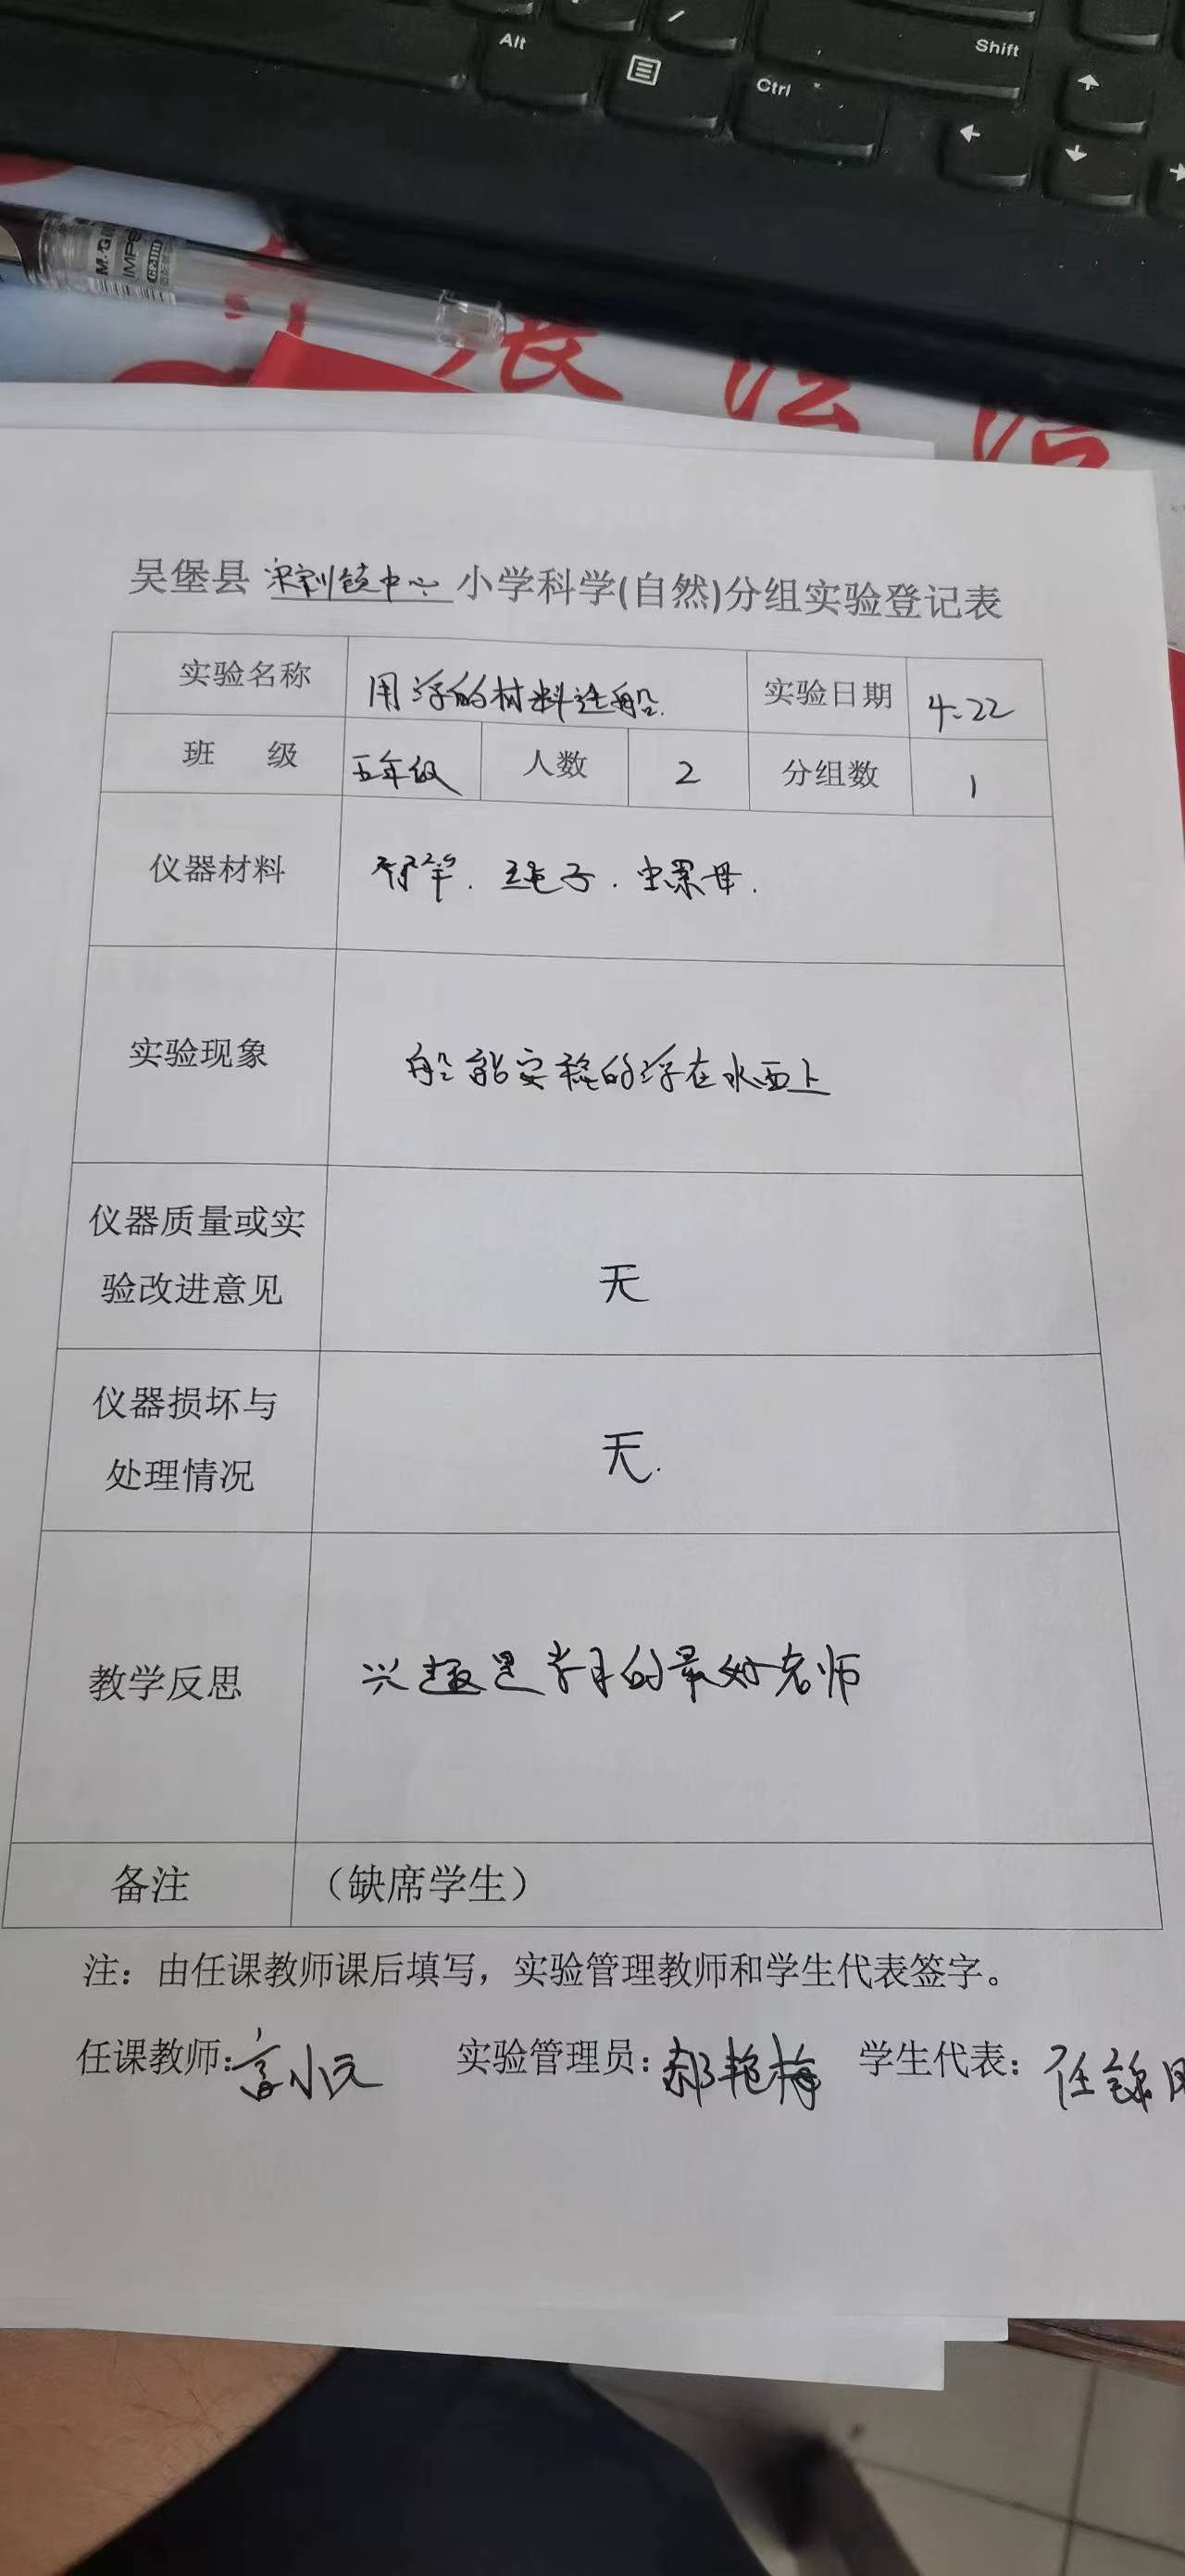 Alt
Shift
Ctrl
M&G
吴堡县 宋家川镇中心 小学科学(自然)分组实验登记表
实验名称 用浮的材料造船. 实验日期 4.22
班 级 五年级 人数 2 分组数 1
仪器材料 . 绳子. 螺母.
实验现象 船能安稳的浮在水面上
仪器质量或实
验改进意见 无
仪器损坏与
处理情况 无.
教学反思 兴趣是学习的最好老师
备注 （缺席学生）
注：由任课教师课后填写，实验管理教师和学生代表签字。
任课教师: 实验管理员: 郝艳梅 学生代表: 任